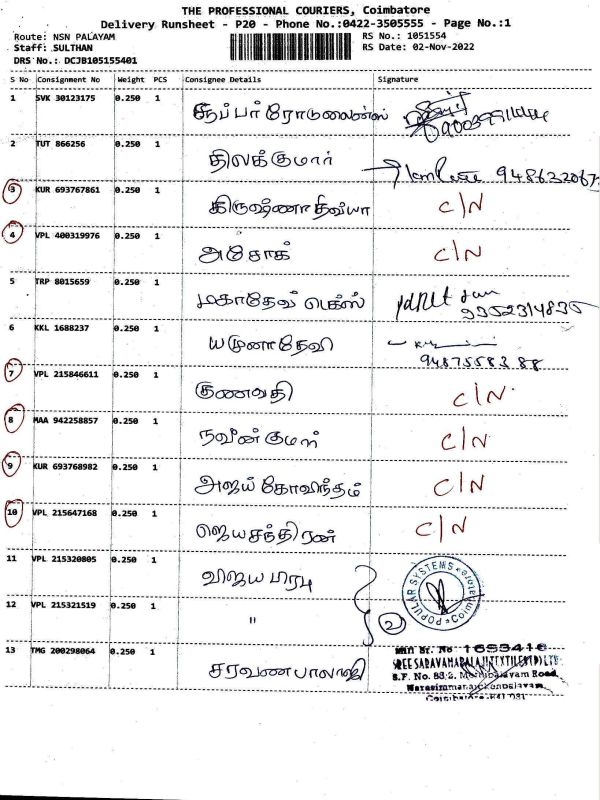 THE PROFESSIONAL COURIERS, Coimbatore
Delivery Runsheet - P20 - Phone No.:0422-3505555 - Page No.:1
Route: NSN PALAYAM RS No.: 1051554
Staff: SULTHAN RS Date: 02-Nov-2022
DRS No.: DCJB105155401
S No Consignment No Weight PCS Consignee Details Signature
1 SVK 30123175 0.250 1 சூப்பர் ரோடுலைன்ஸ்
2 TUT 866256 0.250 1 திலக்குமார்
3 KUR 693767861 0.250 1 கிருஷ்ணா திவ்யா C/N
4 VPL 400319976 0.250 1 அசோக் C/N
5 TRP 8015659 0.250 1 மகாதேவ் டெக்ஸ்
6 KKL 1688237 0.250 1 யமுனாதேவி
9487558388
7 VPL 215846611 0.250 1 குணவதி C/N
8 MAA 942258857 0.250 1 நவீன் குமார் C/N
9 KUR 693768982 0.250 1 அஜய் கோவிந்தம் C/N
10 VPL 215647168 0.250 1 ஜெயசந்திரன் C/N
11 VPL 215320805 0.250 1 விஜய பிரபு
POPULAR SYSTEMS * Coimbatore *
12 VPL 215321519 0.250 1 " 2
13 TMG 200298064 0.250 1 சரவணபாலாஜி
1653416
SREE SARAVANABALAJI TEXTILE (P) LTD
S.F. No. 83/2, Mettupalayam Road,
Narasimmanaickenpalayam,
Coimbatore-641 031